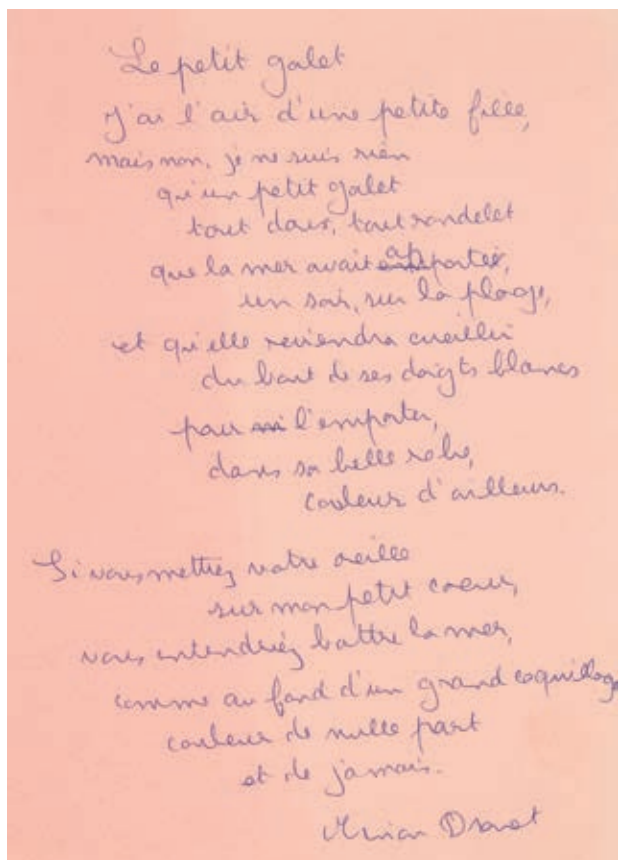 Le petit galet
J'ai l'air d'une petite fille,
mais non, je ne suis rien
qu'un petit galet
tout doux, tout rondelet
que la mer avait apporté,
un soir, sur la plage,
et qu'elle reviendra cueillir
du bout de ses doigts blancs
pour l'emporter,
dans sa belle robe,
couleur d'ailleurs.
Si vous mettiez votre oreille
sur mon petit coeur,
vous entendriez battre la mer,
comme au fond d'un grand coquillage
couleur de nulle part
et de jamais.